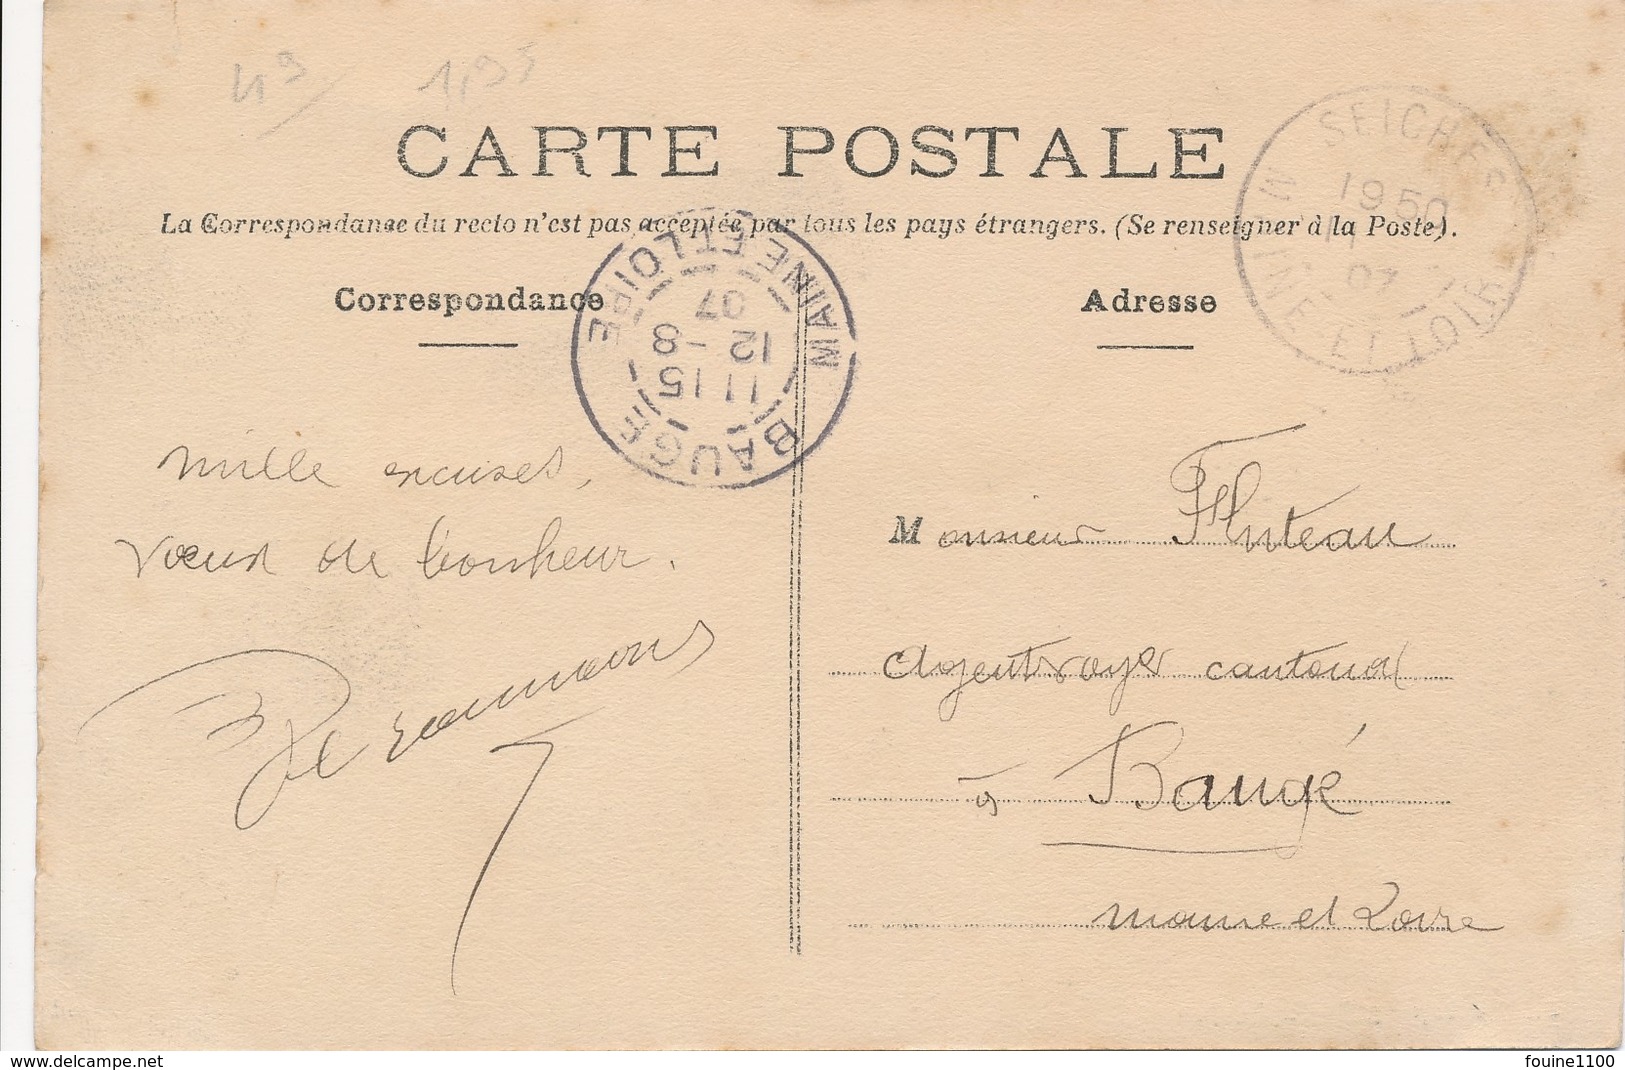 49 1,95
CARTE POSTALE
La Correspondance du recto n'est pas acceptée par tous les pays étrangers. (Se renseigner à la Poste).
Correspondance
Adresse
SEICHES
19 50
11
07
MAINE ET LOIRE
BAUGÉ
11 15
12 - 8
07
MAINE ET LOIRE
Mille excuses,
vœux de bonheur.
Monsieur Fluteau
Agent voyer cantonal
à Baugé
Maine et Loire
www.delcampe.net
fouine1100